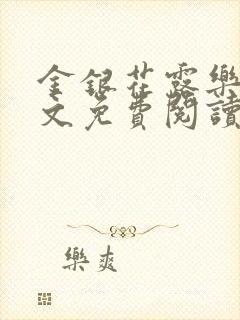 金銀花露樂
文免費閱讀
樂爽